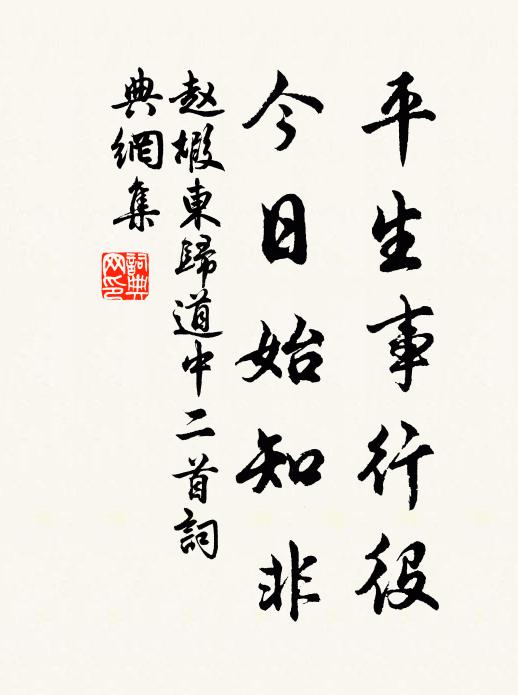 平生事行役
今日始知非
赵椵東歸道中二首詞
典網集
詞典網印